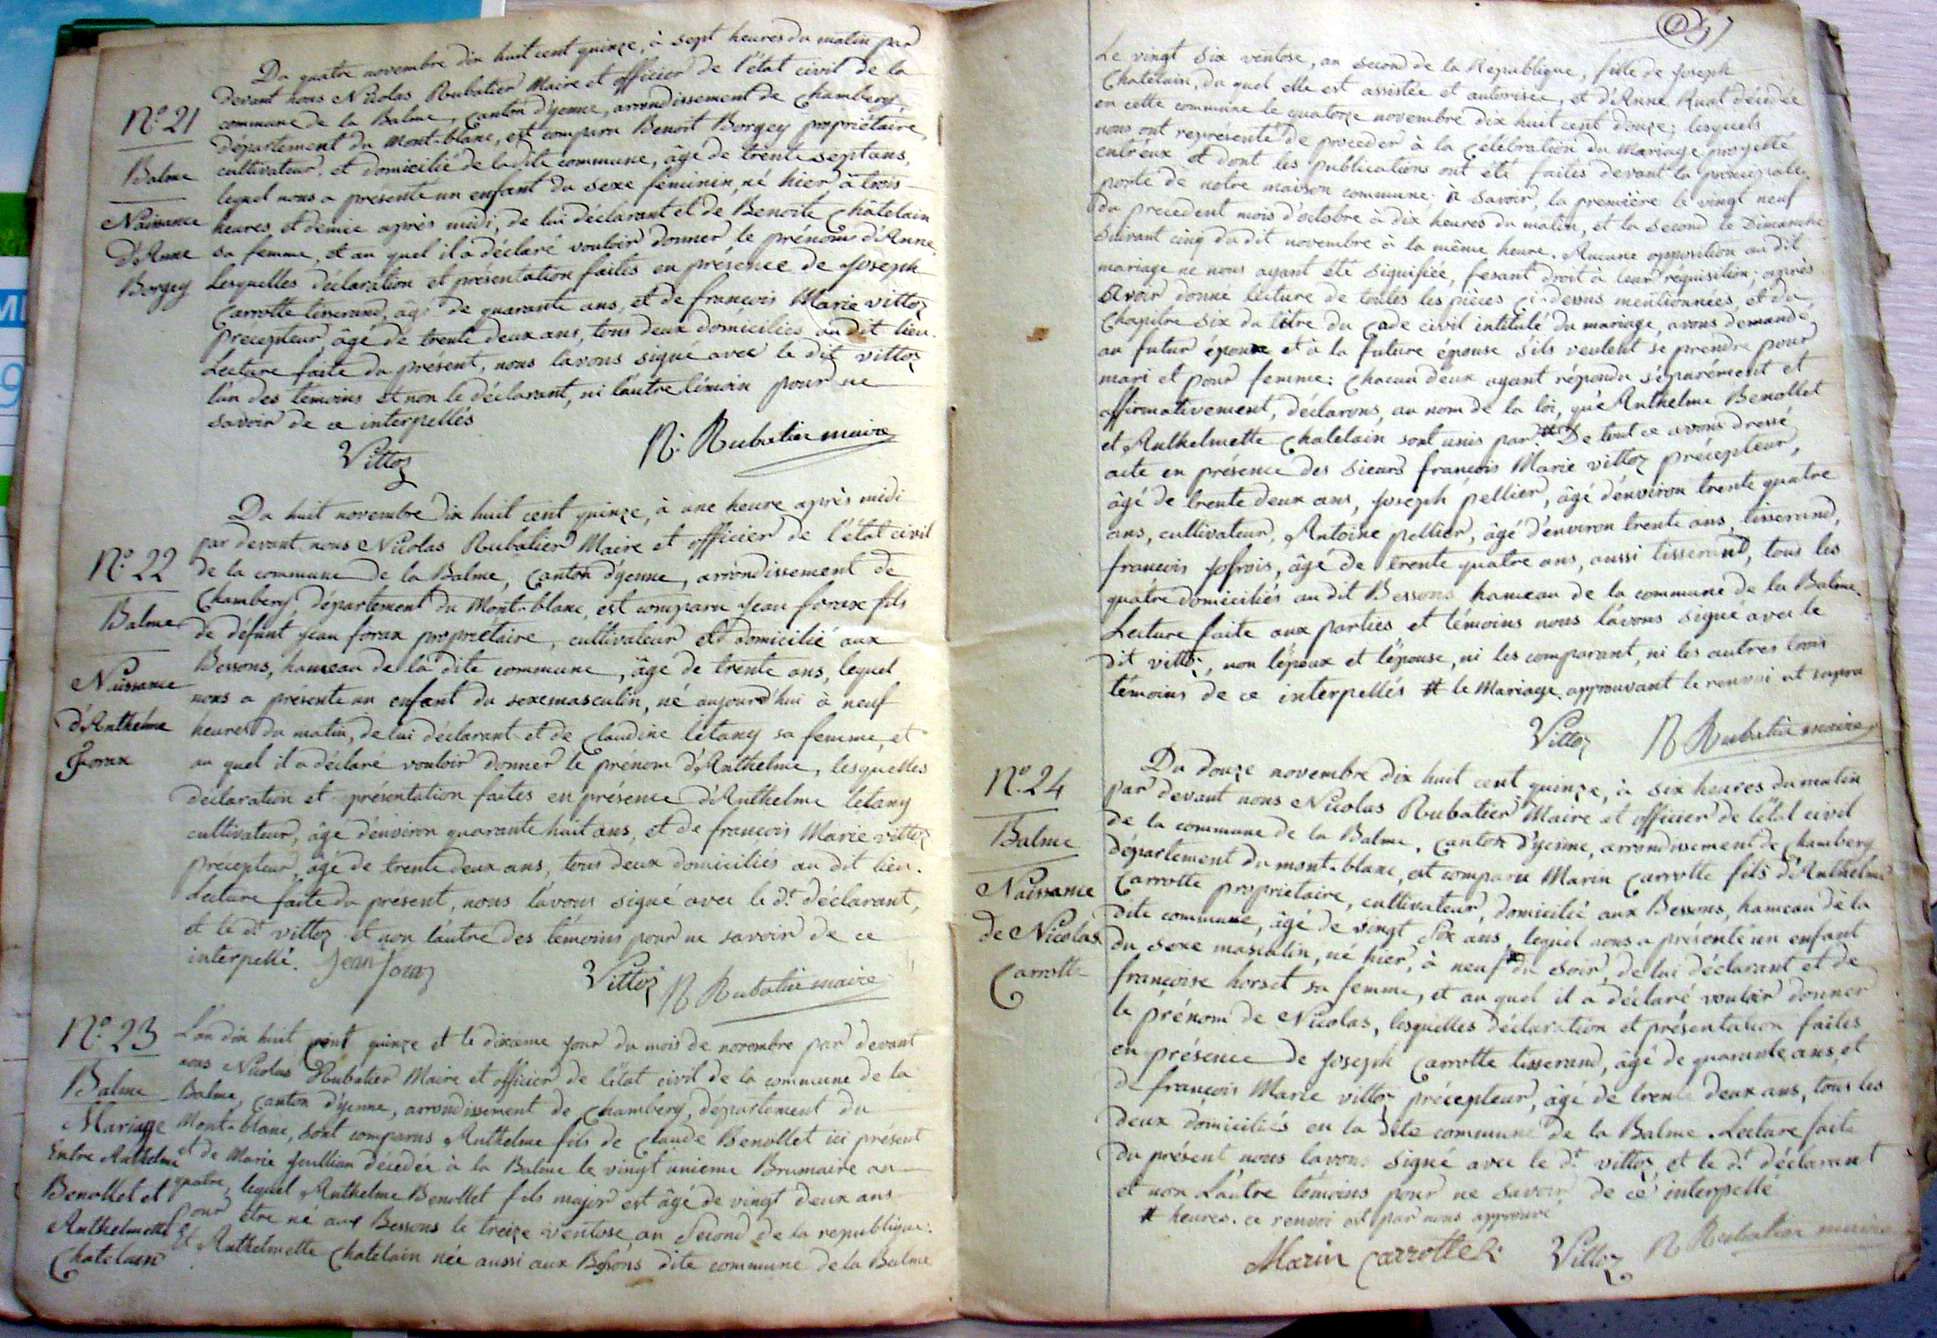 Du quatre novembre dix huit cent quinze, à sept heures du matin par
devant nous Nicolas Rubatier Maire et officier de l'état civil de la
commune de la Balme, Canton d'yenne, arrondissement de Chambery,
département du Mont-blanc, est comparu Benoit Borgey propriétaire,
cultivateur et domicilié de la dite commune, âgé de trente sept ans,
lequel nous a présenté un enfant du sexe féminin, né hier à trois
heures et demie après midi, de lui déclarant et de Benoite Châtelain
sa femme, et au quel il a déclaré vouloir donner le prénom d'Anne
Lesquelles déclaration et présentation faites en présence de Joseph
Carrotte tisserand, âgé de quarante ans, et de francois Marie vittoz
précepteur, âgé de trente deux ans, tous deux domiciliés au dit lieu.
Lecture faite du présent, nous l'avons signé avec le dit vittoz
l'un des témoins et non le déclarant, ni l'autre témoin pour ne
savoir de ce interpellés
Vittoz N. Rubatier maire
N.o 21
Balme
Naissance
d'Anne
Borgey
Du huit novembre dix huit cent quinze, à une heure après midi
par devant nous Nicolas Rubatier Maire et officier de l'état civil
de la commune de la Balme, Canton d'yenne, arrondissement de
Chambery, département du Mont-blanc, est comparu Jean forax fils
de défunt Jean forax propriétaire, cultivateur et domicilié aux
Bessons, hameau de la dite commune, âgé de trente ans, lequel
nous a présenté un enfant du sexe masculin, né aujourd'hui à neuf
heures du matin, de lui déclarant et de Claudine létany sa femme, et
au quel il a déclaré vouloir donner le prénom d'Anthelme, lesquelles
déclaration et présentation faites en présence d'Anthelme létany
cultivateur, âgé d'environ quarante huit ans, et de francois Marie vittoz
précepteur, âgé de trente deux ans, tous deux domiciliés au dit lieu.
Lecture faite du présent, nous l'avons signé avec le dt. déclarant,
et le dt. vittoz et non l'autre des témoins pour ne savoir de ce
interpellé. Jean
Vittoz N Rubatier maire
N.o 22
Balme
Naissance
d'Anthelme
Forax
L'an dix huit cent quinze et le dixieme jour du mois de novembre par devant
nous Nicolas Rubatier Maire et officier de l'état civil de la commune de la
Balme, Canton d'yenne, arrondissement de Chambery, département du
Mont-blanc, sont comparus Anthelme fils de Claude Benollet ici présent
et de Marie Jeullian décedée à la Balme le vingt unieme Brumaire an
quatre, lequel Anthelme Benollet fils major est âgé de vingt deux ans
pour être né aux Bessons le treize ventose, an Second de la republique.
et Anthelmette Chatelain née aussi aux Bessons dite commune de la Balme
N.o 23
Balme
Mariage
Entre Anthelme
Benollet et
Anthelmette
Chatelain
Le vingt Six ventose, an second de la République, fille de Joseph
Chatelain, du quel elle est assistée et autorisée, et d'Anne Ruat décédée
en cette commune le quatorze novembre dix huit cent douze; lesquels
nous ont représenté de proceder à la célébration du Mariage projetté
entr'eux et dont les publications ont été faites devant la principale
porte de notre maison commune; à savoir, la première le vingt neuf
du précedent mois d'octobre à dix heures du matin, et la second le Dimanche
Suivant cinq du dit novembre à la même heure. Aucune opposition au dit
mariage ne nous ayant été signifiée, fesant droit à leur réquisition; après
avoir donné lecture de toutes les pièces ci-dessus mentionnées, et du
chapitre Six du titre du Code civil intitulé du mariage, avons demandé
au futur époux et à la future épouse s'ils veulent se prendre pour
mari et pour femme; chacun deux ayant répondu séparément et
affirmativement, déclarons, au nom de la loi, que Anthelme Benollet
et Anthelmette Chatelain sont unis par # De tout ce avons dressé
acte en présence des Sieurs francois Marie vittoz précepteur,
âgé de trente deux ans, Joseph pellier, âgé d'environ trente quatre
ans, cultivateur, Antoine pellier, âgé d'environ trente ans, tisserand,
francois Jofrois, âgé de trente quatre ans, aussi tisserand, tous les
quatre domiciliés au dit Bessons hameau de la commune de la Balme
Lecture faite aux parties et témoins nous l'avons signé avec le
dit vittoz, non l'époux et l'épouse, ni les comparant, ni les autres trois
témoins de ce interpellés # le Mariage. approuvant le renvoi ut supra
Vittoz N Rubatier maire
Du douze novembre dix huit cent quinze, à six heures du matin
par devant nous Nicolas Rubatier Maire et officier de l'état civil
de la commune de la Balme, Canton d'yenne, arrondissement de Chambery
département du mont-blanc, est comparu Marin Carrotte fils d'Anthelme
Carrotte propriétaire, cultivateur, domicilié aux Bessons, hameau de la
dite commune, âgé de vingt Six ans, lequel nous a présenté un enfant
du sexe masculin, né hier, à neuf # du soir, de lui déclarant et de
francoise horset sa femme, et au quel il a déclaré vouloir donner
le prénom de Nicolas, lesquelles déclaration et présentation faites
en présence de Joseph Carrotte tisserand, âgé de quarante ans, et
de francois Marie vittoz précepteur, âgé de trente deux ans, tous les
deux domiciliés en la dite commune de la Balme. Lecture faite
du présent nous l'avons signé avec le dt. vittoz, et le dt. déclarant
et non L'autre témoins pour ne savoir de ce interpellé
# heures. ce renvoi est par nous approuvé
Marin Carrotte Vittoz N Rubatier maire
N.o 24
Balme
Naissance
de Nicolas
Carrotte